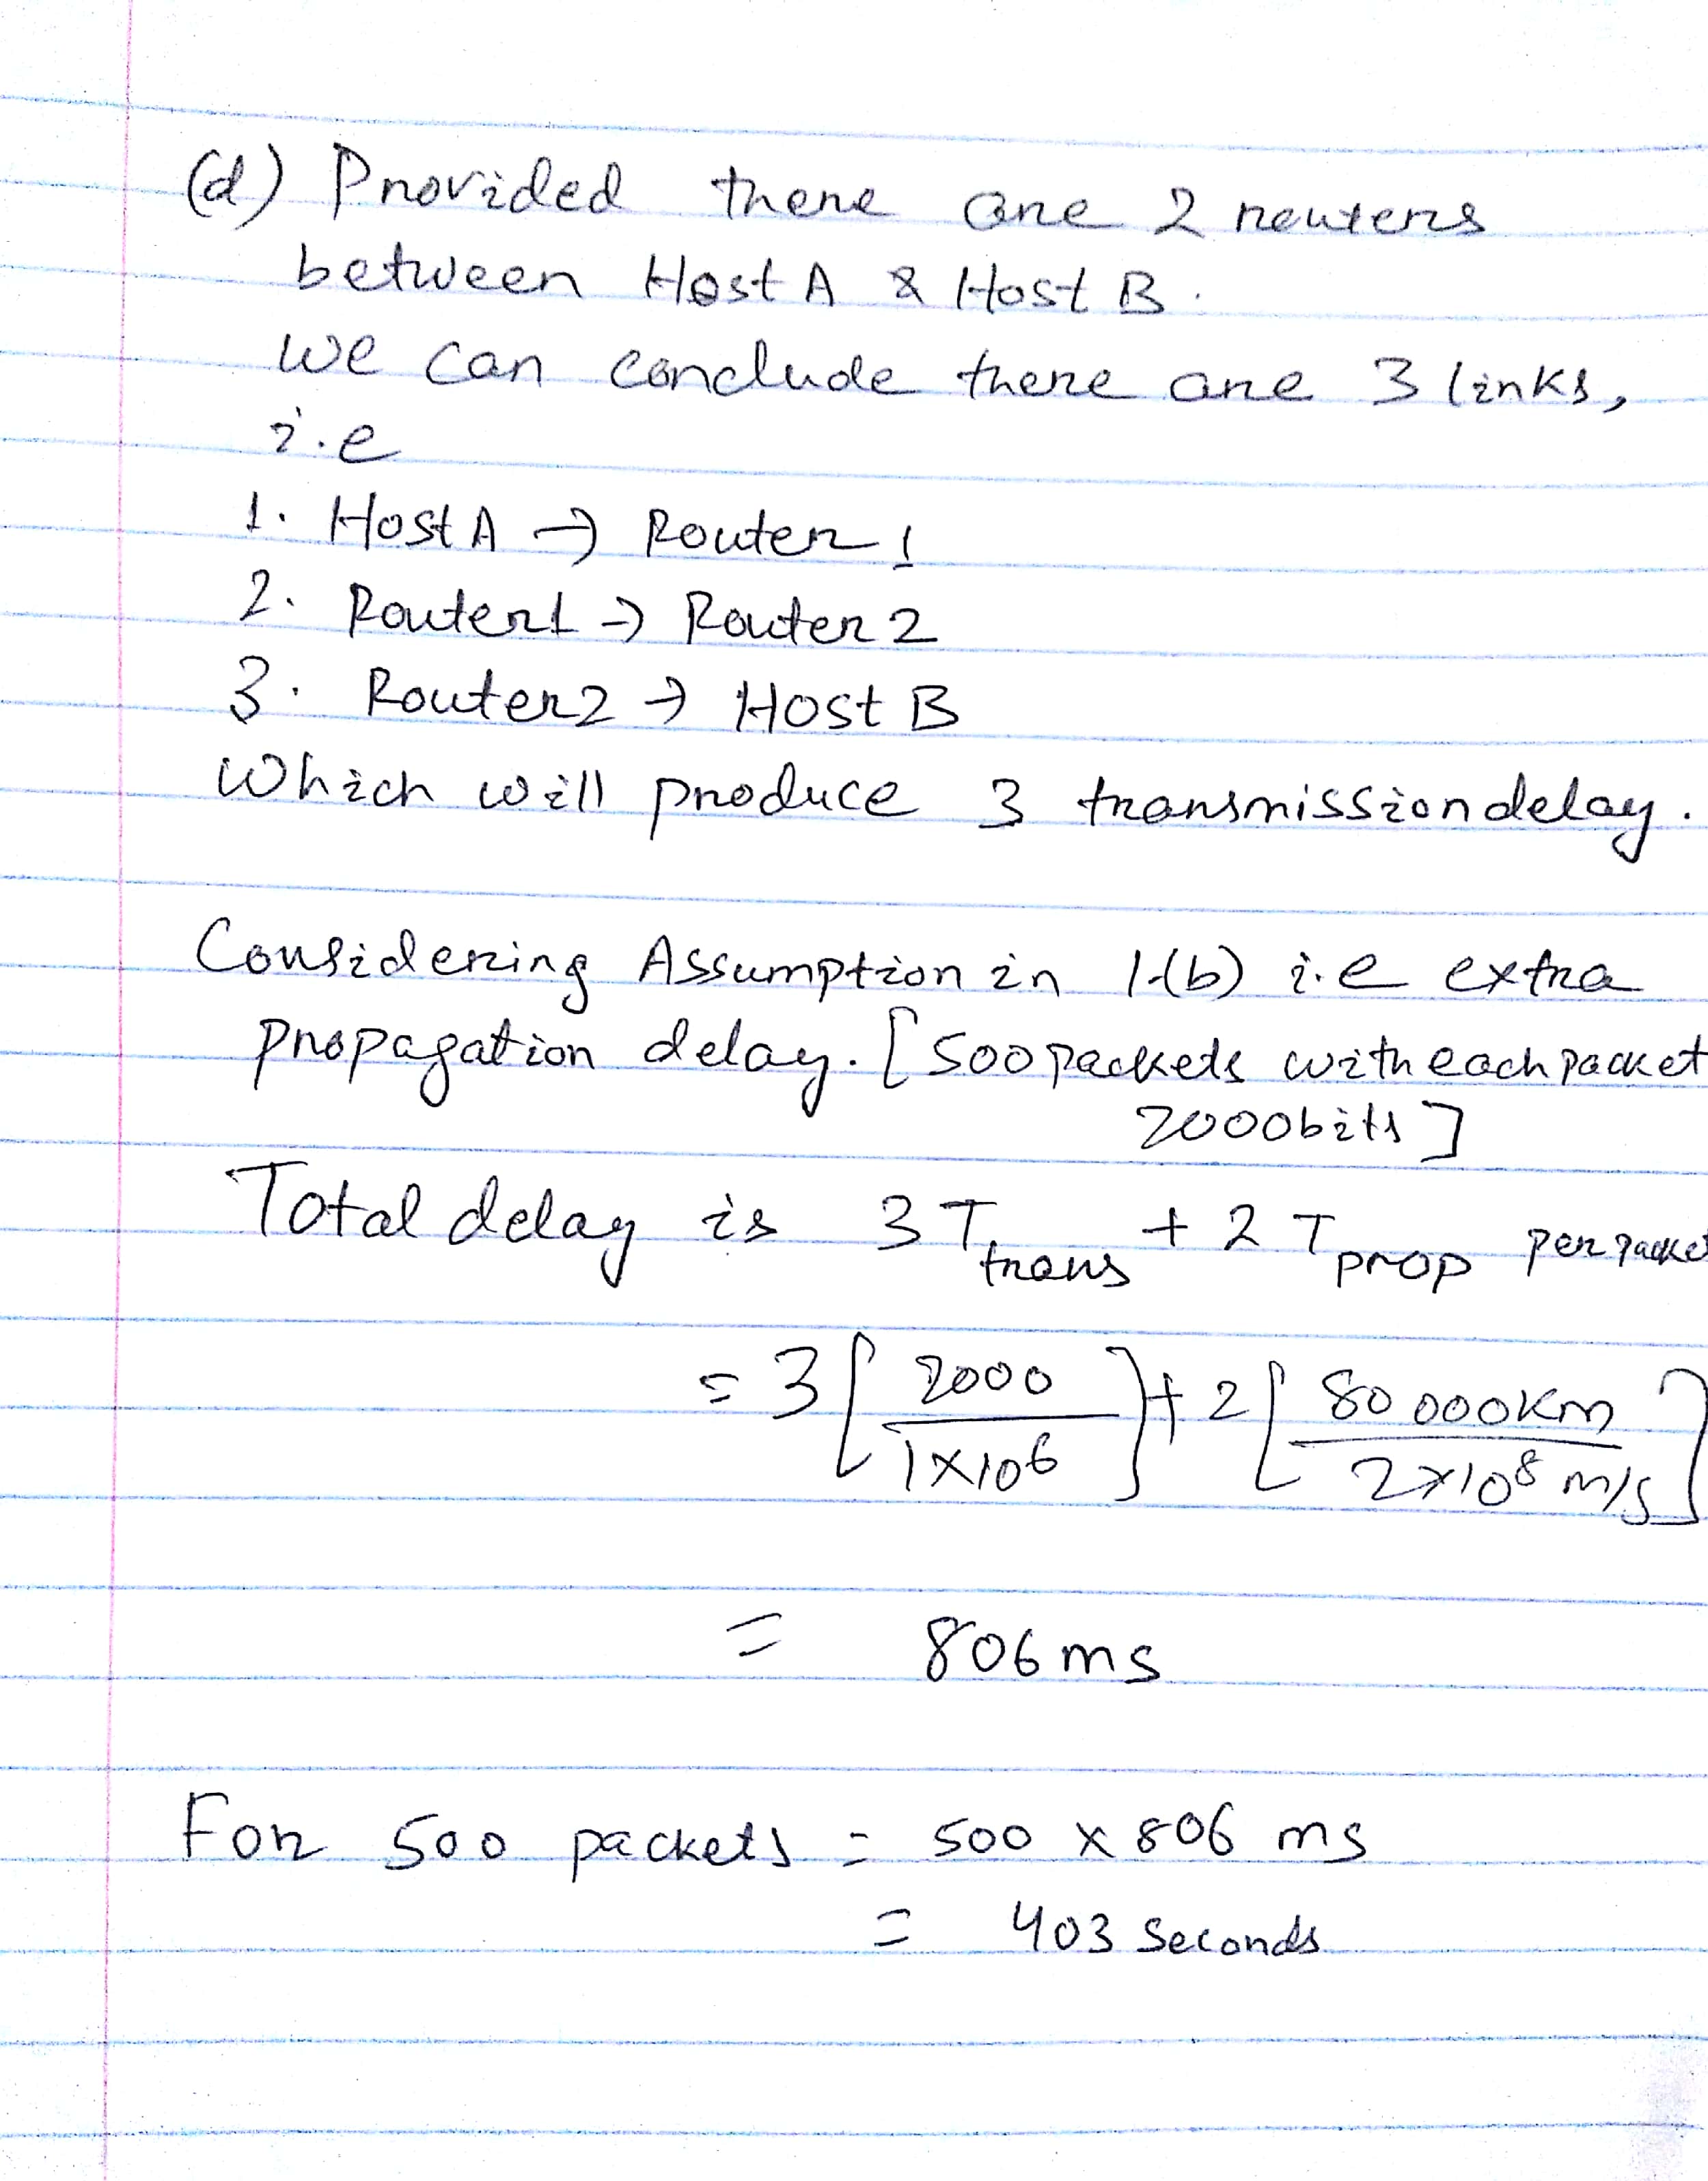 (d) Provided there are 2 routers
between Host A & Host B.
We can conclude there are 3 links,
i.e
1. Host A → Router 1
2. Router1 → Router 2
3. Router2 → Host B
Which will produce 3 transmission delay.
Considering Assumption in 1.(b) i.e extra
propagation delay. [500 packets with each packet
2000bits]
Total delay is 3 T_trans + 2 T_prop per packe
= 3 [ 2000 / 1×10^6 ] + 2 [ 80 000 Km / 2×10^8 m/s ]
= 806 ms
For 500 packets = 500 × 806 ms
= 403 Seconds